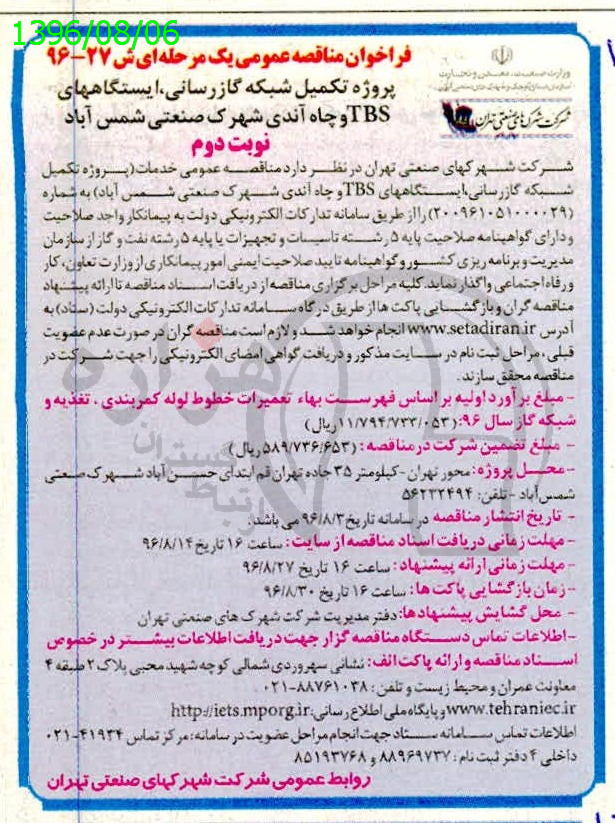 1396/08/06
فراخوان مناقصه عمومی یک مرحله‌ای ش ۲۷-۹۶
وزارت صنعت، معدن و تجارت
پروژه تکمیل شبکه گازرسانی،ایستگاههای
TBS وچاه آندی شهرک صنعتی شمس آباد
شرکت شهرکهای صنعتی تهران
نوبت دوم
شرکت شهرکهای صنعتی تهران در نظر دارد مناقصه عمومی خدمات (پروژه تکمیل
شبکه گازرسانی،ایستگاههای TBS و چاه آندی شهرک صنعتی شمس آباد) به شماره
(۲۰۰۹۶۱۰۵۱۰۰۰۰۲۹) را از طریق سامانه تدارکات الکترونیکی دولت به پیمانکار واجد صلاحیت
و دارای گواهینامه صلاحیت پایه ۵ رشته تاسیسات و تجهیزات یا پایه ۵ رشته نفت و گاز از سازمان
مدیریت و برنامه ریزی کشور و گواهینامه تایید صلاحیت ایمنی امور پیمانکاری از وزارت تعاون، کار
و رفاه اجتماعی واگذار نماید.کلیه مراحل برگزاری مناقصه از دریافت اسناد مناقصه تا ارائه پیشنهاد
مناقصه گران و بازگشایی پاکت ها از طریق درگاه سامانه تدارکات الکترونیکی دولت (ستاد) به
آدرس www.setadiran.ir انجام خواهد شد و لازم است مناقصه گران در صورت عدم عضویت
قبلی، مراحل ثبت نام در سایت مذکور و دریافت گواهی امضای الکترونیکی را جهت شرکت در
مناقصه محقق سازند.
- مبلغ برآورد اولیه بر اساس فهرست بهاء تعمیرات خطوط لوله کمربندی ، تغذیه و
شبکه گاز سال ۹۶: (۱۱/۷۹۴/۷۳۳/۰۵۳ ریال)
- مبلغ تضمین شرکت در مناقصه : (۵۸۹/۷۳۶/۶۵۳ ریال)
- محل پروژه: محور تهران - کیلومتر ۳۵ جاده تهران قم ابتدای حسن آباد شهرک صنعتی
شمس آباد - تلفن: ۵۶۲۳۲۴۹۴
- تاریخ انتشار مناقصه در سامانه تاریخ ۹۶/۸/۳ می باشد.
- مهلت زمانی دریافت اسناد مناقصه از سایت: ساعت ۱۶ تاریخ ۹۶/۸/۱۴
- مهلت زمانی ارائه پیشنهاد: ساعت ۱۶ تاریخ ۹۶/۸/۲۷
- زمان بازگشایی پاکت ها: ساعت ۱۶ تاریخ ۹۶/۸/۳۰
- محل گشایش پیشنهادها: دفتر مدیریت شرکت شهرک های صنعتی تهران
- اطلاعات تماس دستگاه مناقصه گزار جهت دریافت اطلاعات بیشتر در خصوص
اسناد مناقصه و ارائه پاکت الف: نشانی سهروردی شمالی کوچه شهید محبی پلاک ۲ طبقه ۴
معاونت عمران و محیط زیست و تلفن: ۸۸۷۶۱۰۳۸-۰۲۱
www.tehraniec.ir و پایگاه ملی اطلاع رسانی: http://iets.mporg.ir
اطلاعات تماس سامانه ستاد جهت انجام مراحل عضویت در سامانه: مرکز تماس ۴۱۹۳۴-۰۲۱
داخلی ۴ دفتر ثبت نام: ۸۸۹۶۹۷۳۷ و ۸۵۱۹۳۷۶۸
روابط عمومی شرکت شهرکهای صنعتی تهران